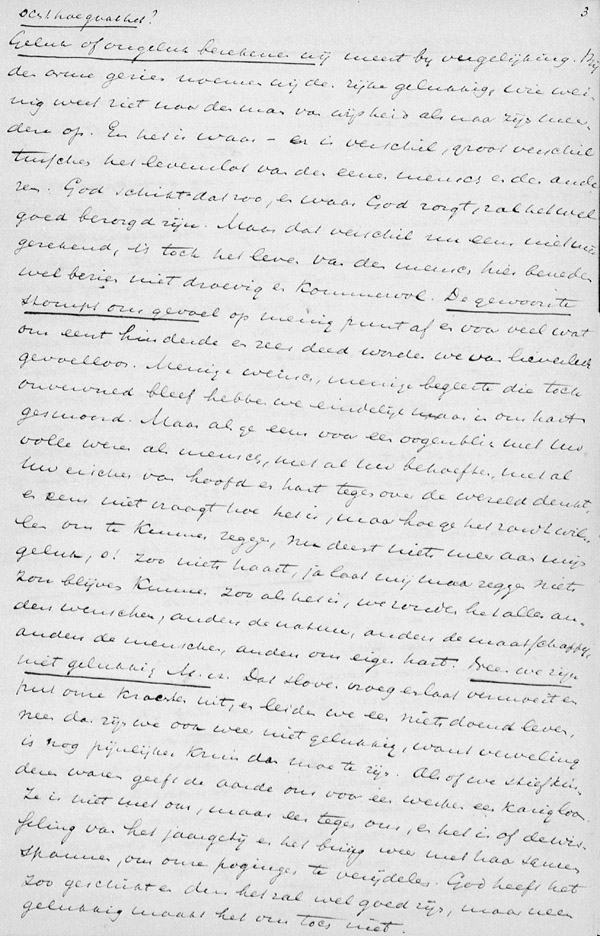 3
Geluk of ongeluk berekenen wij meest by vergelijking. Bij
den arme gezien noemen wij den rijke gelukkig, wie wei-
nig weet ziet naar den man van wijsheid als naar zijn mee-
dere op. En het is waar – er is verschil, groot verschil
tusschen het levenslot van den eenen mensch en den ande
ren. God schikt dat zoo, en waar God zorgt, zal het wel
goed bezorgd zijn. Maar dat verschil nu eens niet
gerekend, is toch het leven van den mensch hier beneden
wel bezien niet droevig en kommervol. De gewoonte
stompt ons gevoel op menig punt af en voor veel wat
ons eerst hinderde en zeer deed worden we van lieverlede
gevoelloos. Menige wensch, menige begeerte die toch
onvervuld bleef hebben we eindelijk maar in ons hart
gesmoord. Maar als ge eens voor een oogenblik met uw
volle wezen als mensch, met al uw behoeften, met al
uw eischen van hoofd en hart tegenover de wereld denkt,
en eens niet vraagt hoe het is, maar hoe ge het zoudt wil-
len om te kunnen zeggen, nu deert niets meer aan mijn
geluk, o! zoo niets haast, ja laat mij maar zeggen niets
zou blijven kunnen zoo als het is, we zouden het alles an-
ders wenschen, anders de natuur, anders de maatschappij,
anders de menschen, anders ons eigen hart. Neen we zijn
niet gelukkig M. H. Dat slaven vroeg en laat vermoeit en
put onze krachten uit, en leiden we een niets doend leven,
neen dan zijn we ook weer niet gelukkig, want verveling
is nog pijnlijker kruis dan moe te zijn. Alsof we stiefkin-
deren waren geeft de aarde ons voor ons werken een karig loon.
Ze is niet met ons, maar eer tegen ons, en het is of de wis-
seling van het jaargetij en het
spannen, om onze pogingen te verijdelen. God heeft het
zoo geschikt en dus het zal wel goed zijn, maar neen
gelukkig maakt het ons toch niet.